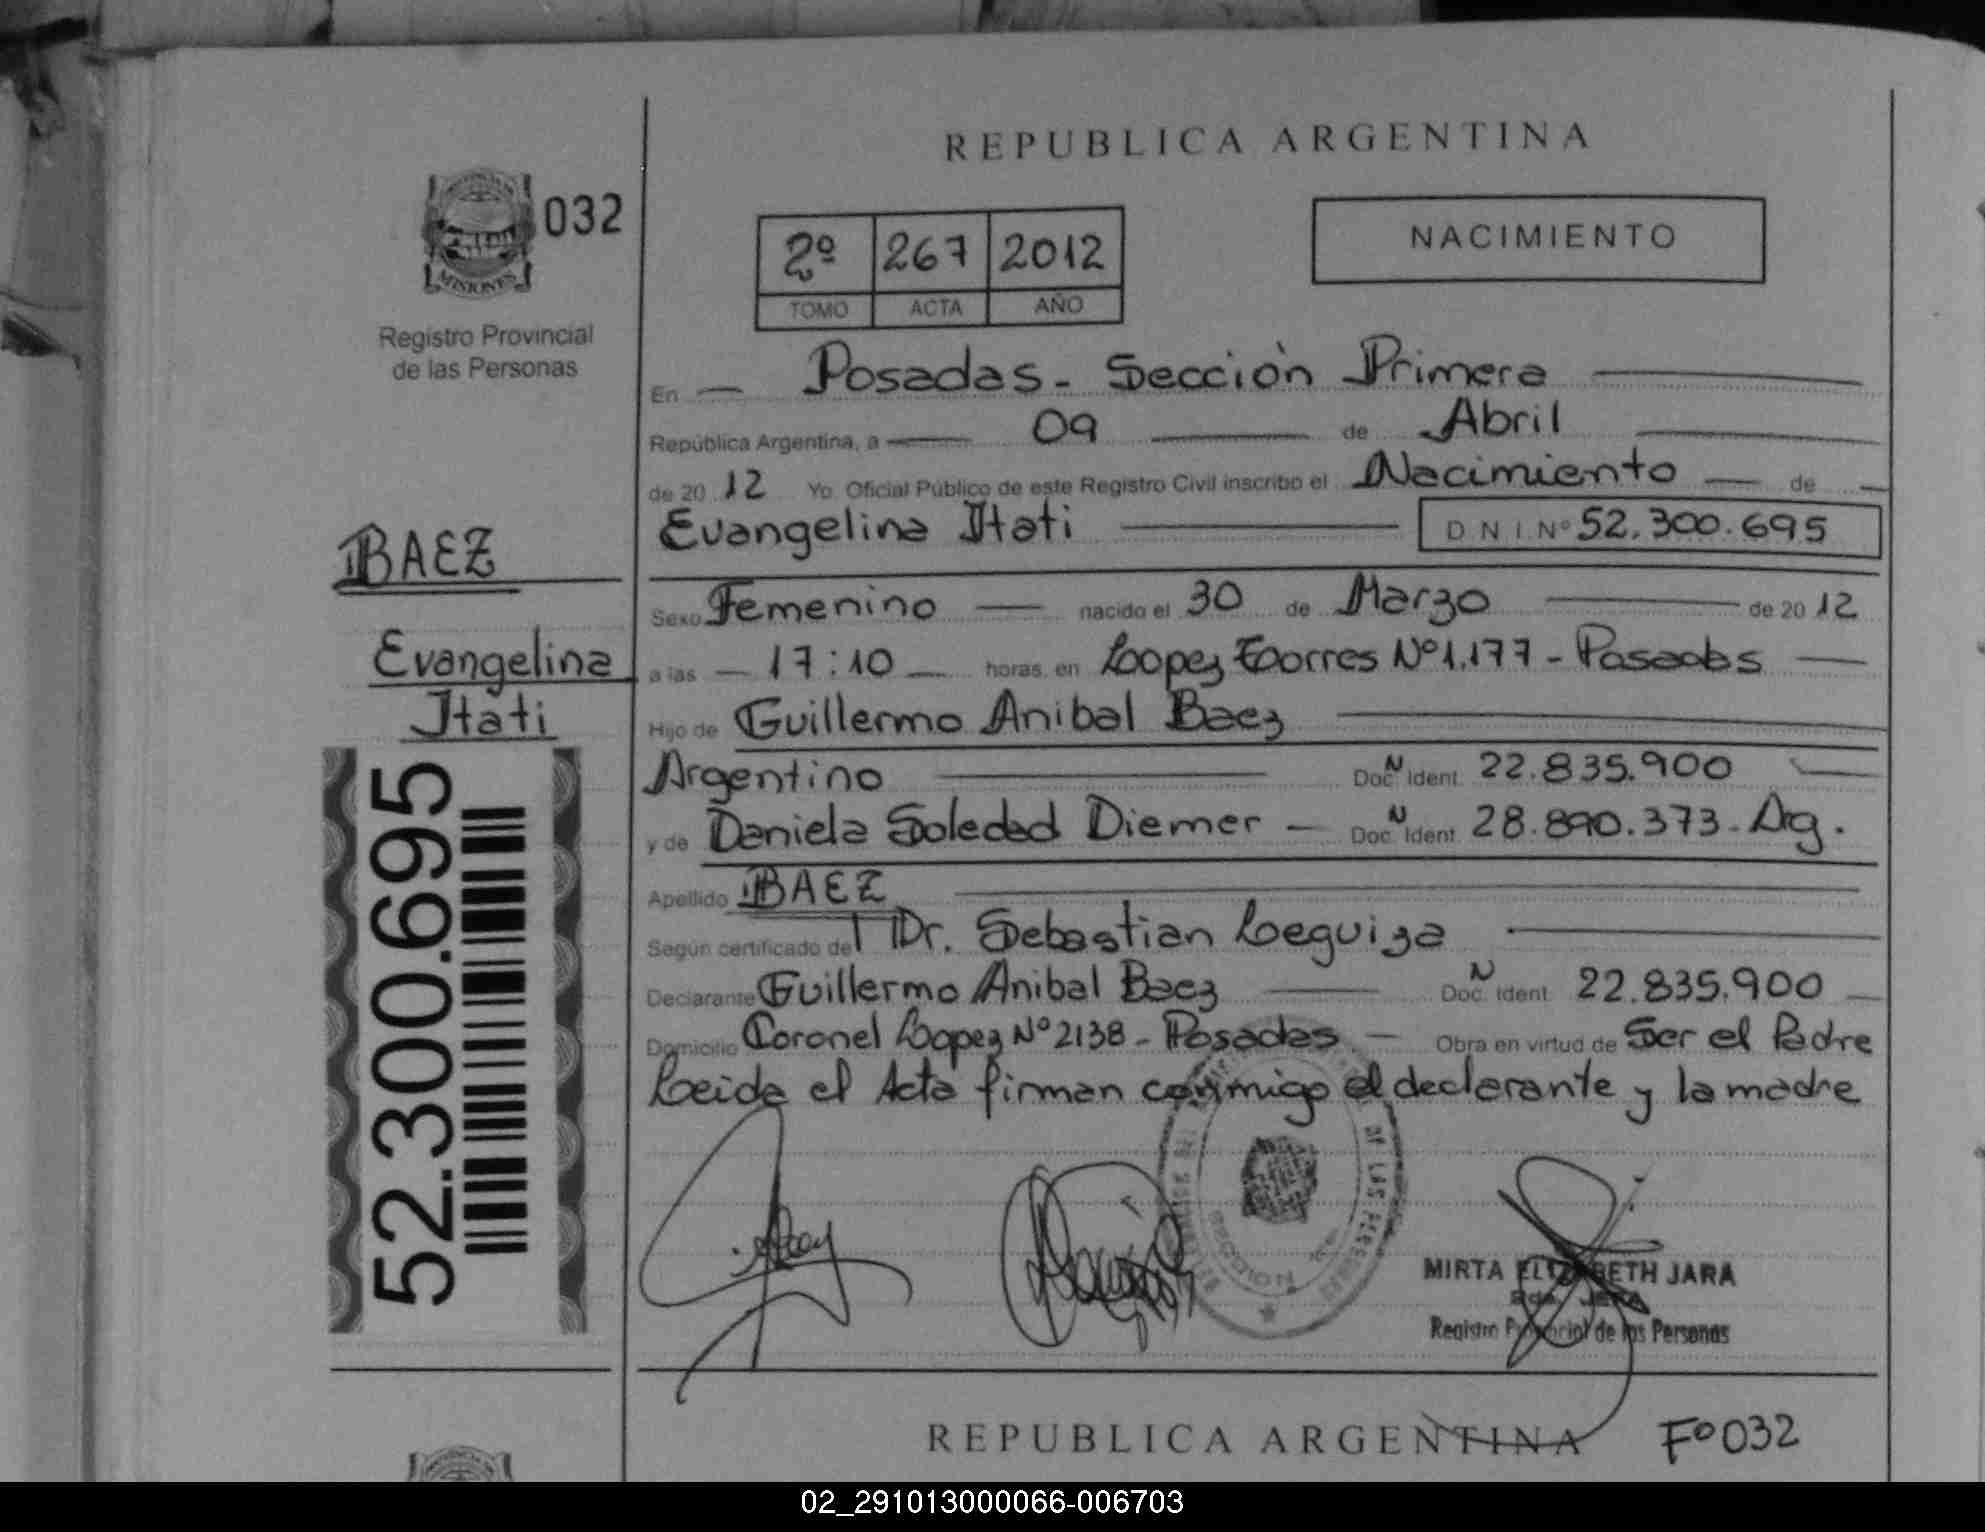 REPUBLICA ARGENTINA
MISIONES
032
Registro Provincial
de las Personas
2º 267 2012
TOMO ACTA AÑO
NACIMIENTO
En Posadas - Sección Primera
República Argentina, a 09 de Abril
de 20 12 Yo Oficial Público de este Registro Civil inscribo el Nacimiento de
Evangelina Itati D N I Nº 52.300.695
BAEZ
Evangelina
Itati
52.300.695
Sexo Femenino nacido el 30 de Marzo de 20 12
a las 17:10 horas, en Lopez Torres Nº 1.177 - Posadas
Hijo de Guillermo Anibal Baez
Argentino Doc. N Ident. 22.835.900
y de Daniela Soledad Diemer - Doc. N Ident. 28.890.373 - Arg.
Apellido BAEZ
Según certificado del Dr. Sebastian Leguiza
Declarante Guillermo Anibal Baez Doc. N Ident. 22.835.900
Domicilio Coronel Lopez Nº 2138 - Posadas - Obra en virtud de Ser el Padre
Leida el Acta firman conmigo el declarante y la madre
DE LAS PERSONAS
SECCION
MIRTA ELIZABETH JARA
Registro Provincial de las Personas
REPUBLICA ARGENTINA
Fº 032
02_291013000066-006703